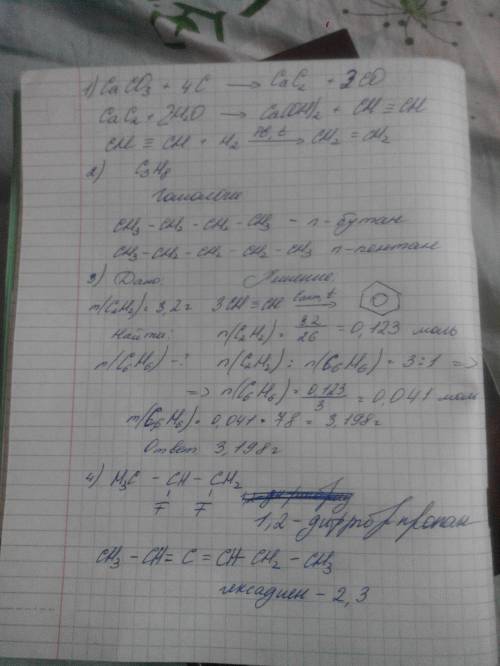 1) CaCO3 + 4C → CaC2 + 3CO
CaC2 + 2H2O → Ca(OH)2 + CH≡CH
CH ≡ CH + H2 → CH2 = CH2
2) C3H8
Гомологи
CH3-CH2-CH2-CH3 - n-бутан
CH3-CH2-CH2-CH2-CH3 n-пентан
3) Дано: Решение:
m(C2H2)= 3,2г 3CH≡CH →
Найти: n(C2H2)= 3,2/26 = 0,123 моль
m(C6H6)-? n(C2H2) : n(C6H6) = 3:1 =>
=> n(C6H6) = 0,123/3 = 0,041 моль
m(C6H6)= 0,041 * 78 = 3,198г
Ответ 3,198г
4) H3C - CH - CH2
F F
1,2-дифторпропан
CH3 - CH = C = CH - CH2 - CH3
гексадиен - 2,3